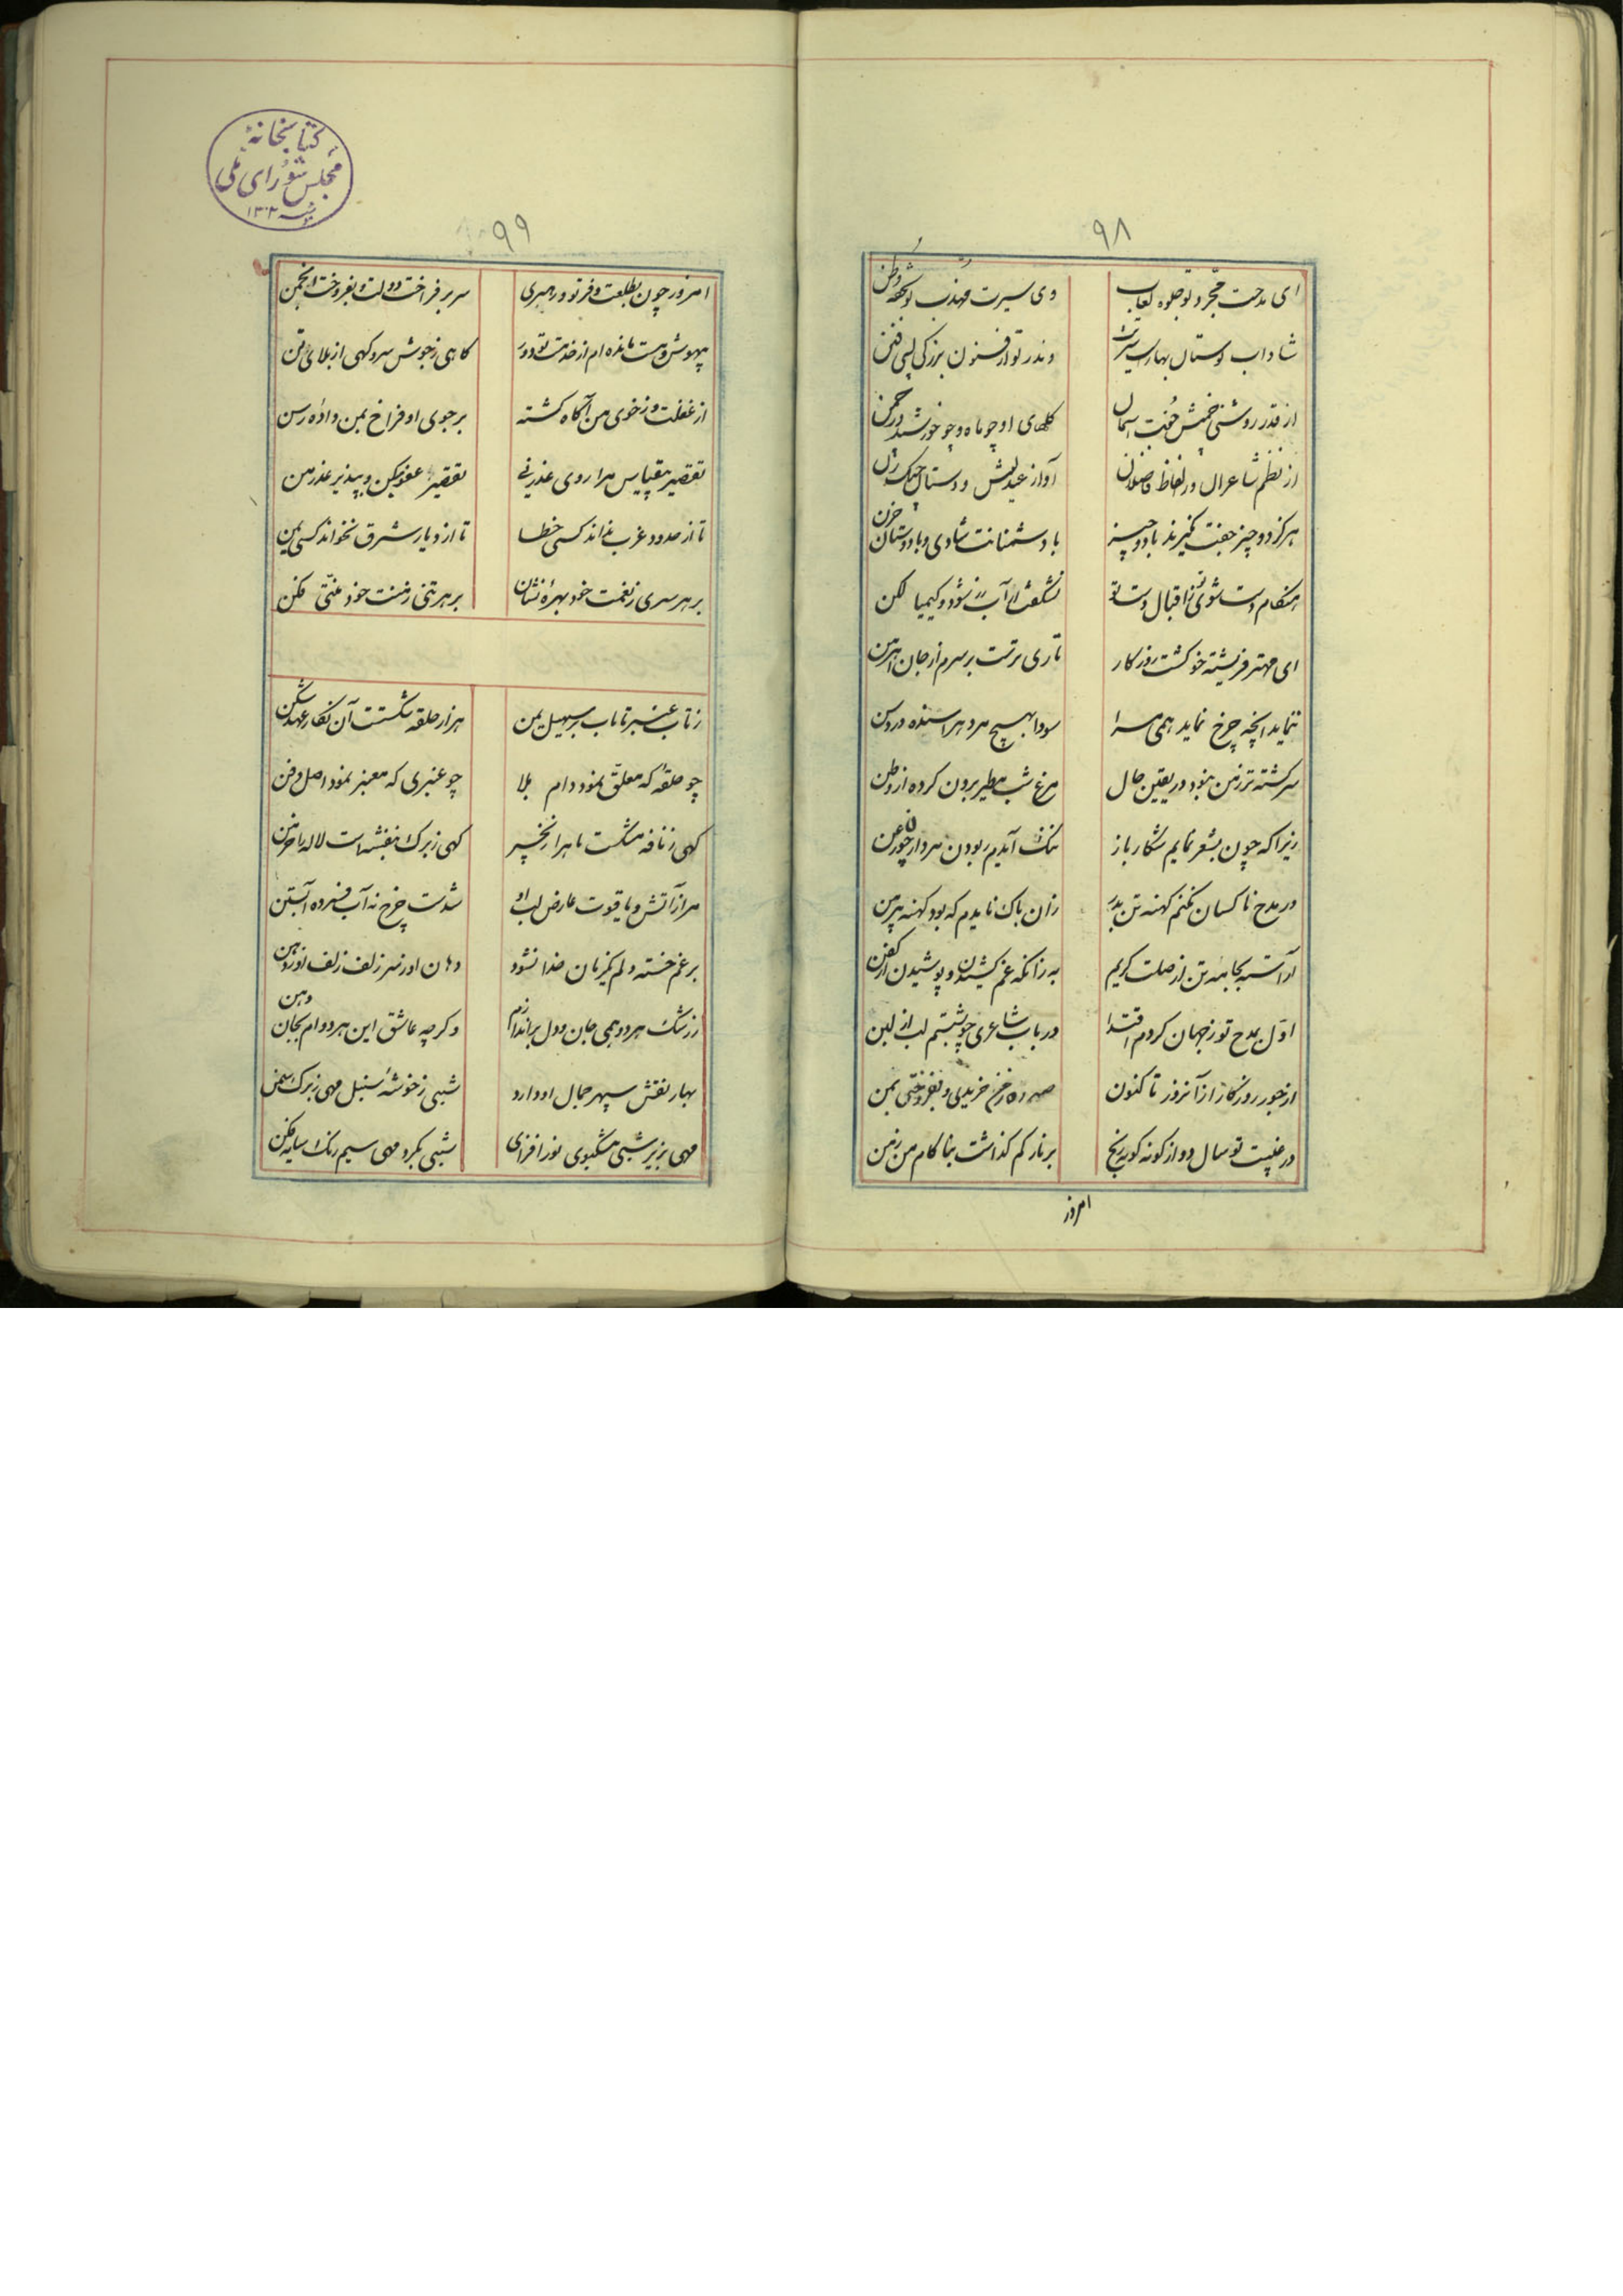 ۹۸
ای مدحت مجرد تو جلوه لعاب
وی سیرت مهذب تو شحنه وطن
شاداب بوستان بهار سیرت
وندر تو از فسنون بزرگی بسی فنن
از قدر روشنی خمش جفت آسمان
گلهای او چو ماه و چو خورشید در چمن
از نظم شاعران و ز الفاظ فاضلان
آواز عندلیش و دستان چنگ زن
هرگز دو چیز جفت نگیرند با دو چیز
با دشمنانت شادی و با دوستان حزن
هنگام دست شوئی از اقبال دست تو
نشگفت اگر آب زر شود و کیمیا لگن
ای مهتر فریشته خو گشت روزگار
تاری ترست بر سرم از جان اهرمن
ننماید آنچه چرخ نماید همی مرا
سودا بهیچ مرد هراسنده در وسن
سرگشته تر ز من نبود در یقین حال
مرغ شب مطیر برون کرده از وطن
زیرا که چون بشعر نمایم شکار باز
ننگ آیدم ربودن مردار چون زغن
در مدح ناکسان نکنم کهنه تن بدرّ
زان باک نایدم که بود کهنه پیرهن
آراسته بجامه تن از صلت کریم
به زانکه غم کشیدن و پوشیدن از کفن
اوّل بمدح تو ز جهان کردم ابتدا
در باب شاعری چو بشستم لب از لبن
از جور روزگار از آنروز تا کنون
صد ره ز من خریدی و بفروختی بمن
در غیبت تو سال دو از گونه گونه رنج
بر نارکم گذاشت بناکام من زمن
امروز
کتابخانهٔ
مجلس شورای ملی
۱۳۰۲
۹۹
امروز چون بطلعت و فر تو در هری
سر بر فراخت دولت و بفروخت انجمن
بیهوش و مست مانده ام از خدمت تو دور
گاهی ز جوش سر و گهی از بلای تن
از غفلت و ز خوی من آگاه گشته
بر جوی او فراخ بمن داده رسن
تقصیر بیقیاس مرا روی عذر نی
تقصیر عفو کن و بپذیر عذر من
تا از حدود غرب نداند کسی خطا
تا از دیار شرق نخواند کسی یمن
بر هر سری ز نعمت خود بهره نشان
بر هر تنی ز منت خود منّتی فکن
ز تاب عنبر تا تاب بر سهیل یمن
هزار حلقه شکستت آن نگار عهد شکن
چو حلقه که معلق نمود دام بلا
چو عنبری که معنبر نمود اصل و فن
گهی ز نافه مشکست ماه را زنجیر
گهی ز برک بنفشه است لاله را خرمن
مرا ز آتش و یاقوت عارض لب او
شدست چرخ نه آب فسرده آبستن
بر غم خسته دلم یکزمان جدا نشود
دهان او ز سر زلف و زلف او ز دهن
ز رشک هر دو همی جان و دل براندازم
و گرچه عاشق این هر دو ام بجان و بتن
بهار نقش سپهر جمال او دارد
شبی ز خوشهٔ سنبل مهی ز برک سمن
مهی بزیر شبی مشکبوی نور افزای
شبی بگرد مهی سیم رنک سایه فکن